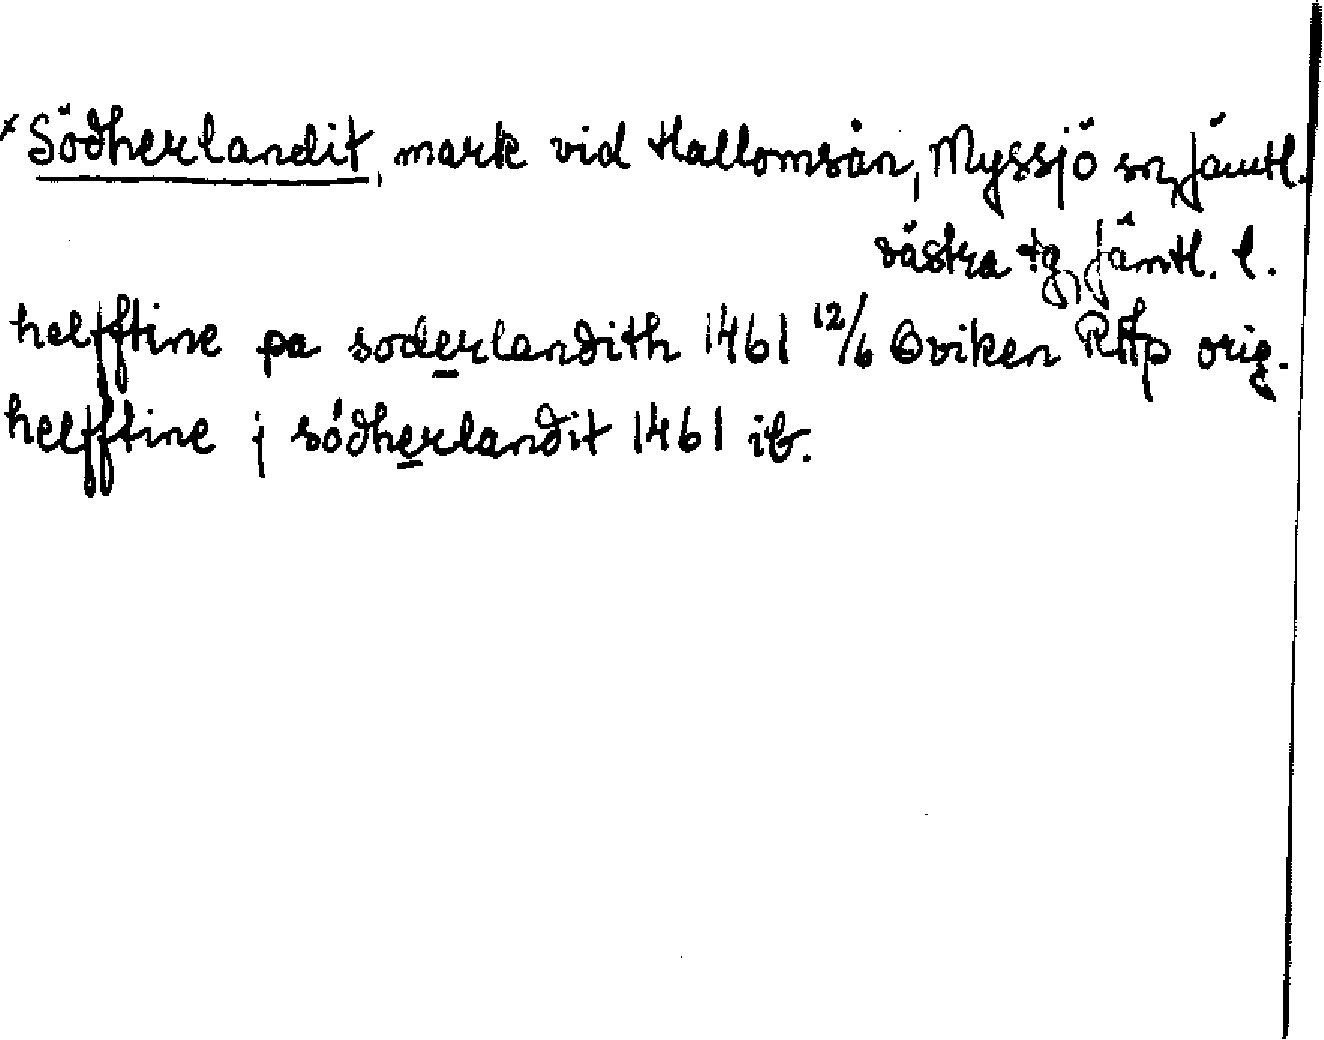 × Södherlandit, mark vid Hallomsån, Myssjö sn, Jämtl.
västra tg, Jämtl. l.
helfftine pa soderlandith 1461 12/6 Oviken RAp orig.
helfftine j södherlandit 1461 ib.